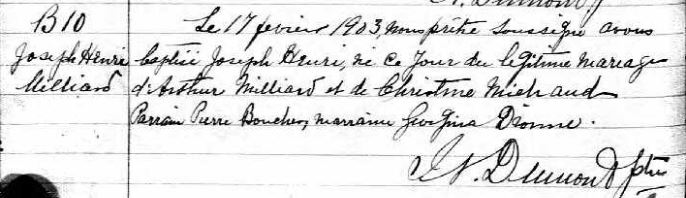 B10
Joseph Henri
Milliard
Le 17 fevrier 1903, nous prêtre soussigné avons
baptisé Joseph Henri, né ce jour du légitime mariage
d'Arthur Milliard et de Christine Michaud
Parrain Pierre Boucher, marraine Georgina Dionne.
Dumont ptre